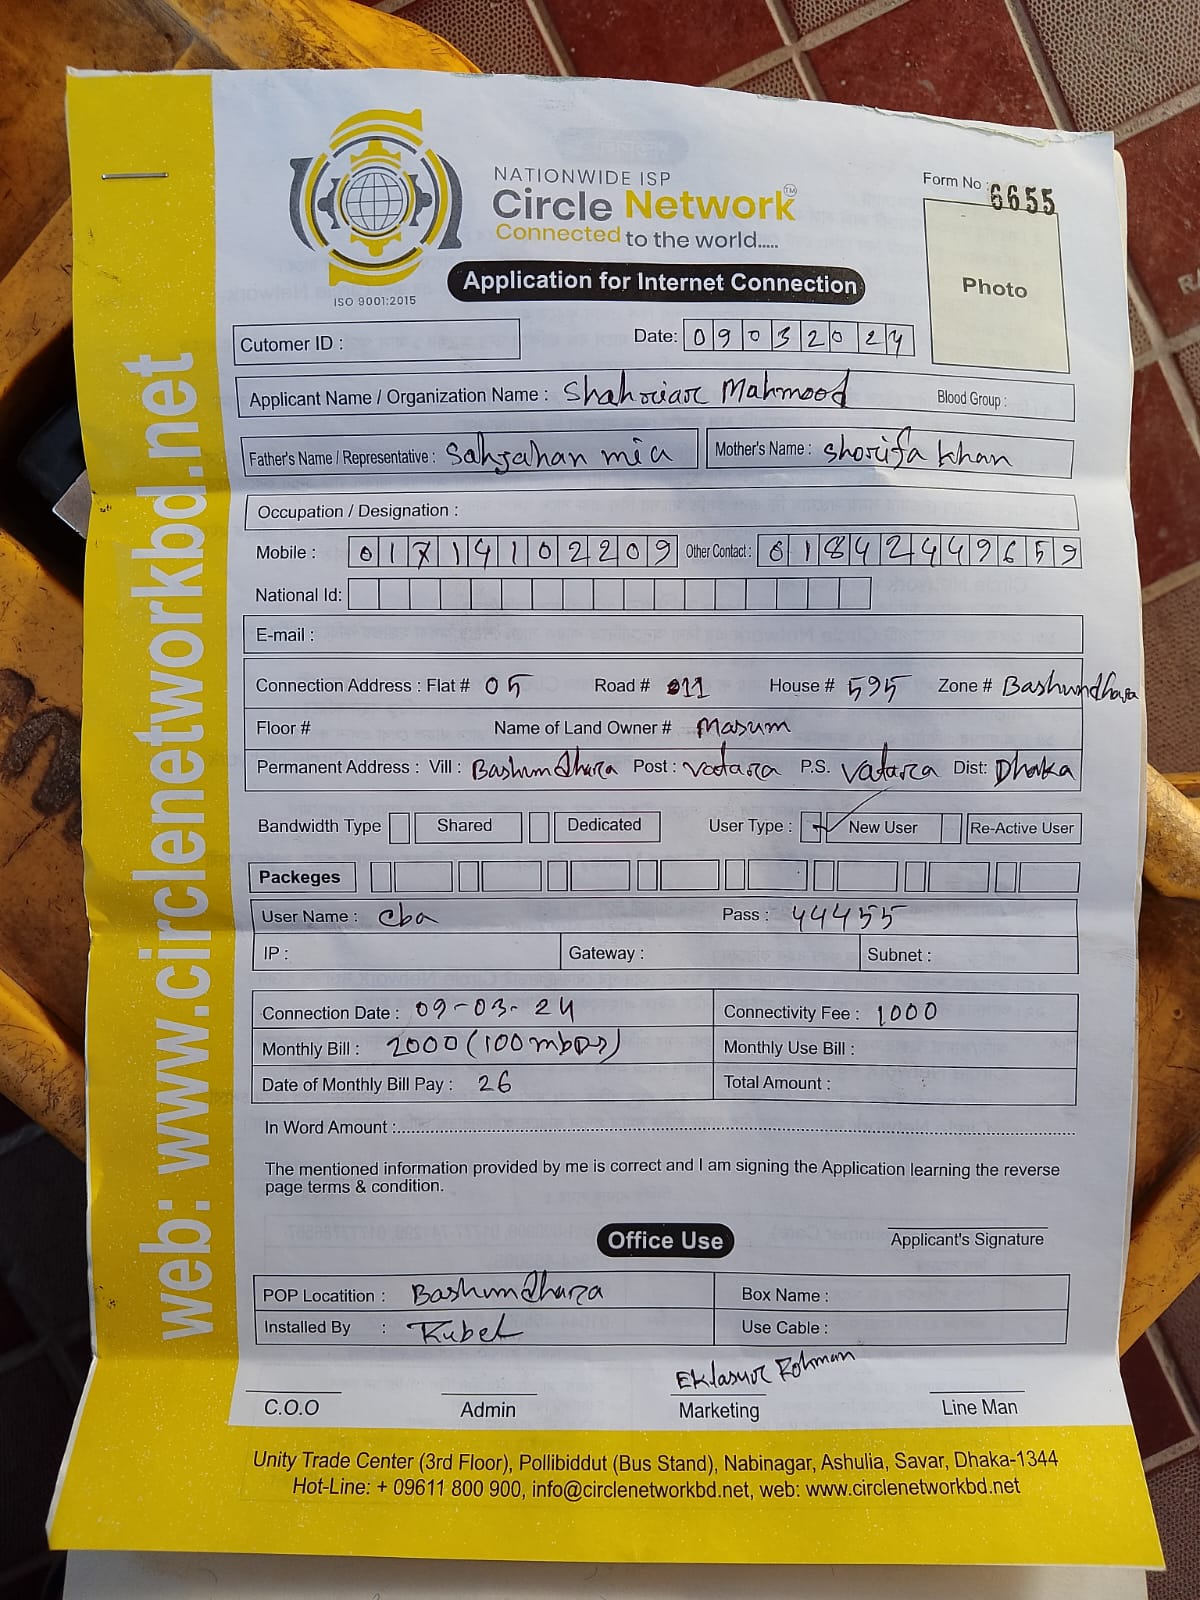 NATIONWIDE ISP
Circle Network TM
Connected to the world.....
ISO 9001:2015
Form No : 6655
Photo
Application for Internet Connection
Cutomer ID :
Date: 09032024
Applicant Name / Organization Name : Shahriar Mahmood Blood Group :
Father's Name / Representative : Sahjahan mia Mother's Name : Shorifa Khan
Occupation / Designation :
Mobile : 01714102209 Other Contact : 01842449659
National Id:
E-mail :
Connection Address : Flat # 05 Road # 11 House # 595 Zone # Bashundhara
Floor # Name of Land Owner # Masum
Permanent Address : Vill : Bashundhara Post : Vatara P.S. Vatara Dist: Dhaka
Bandwidth Type Shared Dedicated User Type : New User Re-Active User
Packeges
User Name : cba Pass : 44455
IP : Gateway : Subnet :
Connection Date : 09-03-24 Connectivity Fee : 1000
Monthly Bill : 2000 (100 mbps) Monthly Use Bill :
Date of Monthly Bill Pay : 26 Total Amount :
In Word Amount :
The mentioned information provided by me is correct and I am signing the Application learning the reverse
page terms & condition.
Office Use
Applicant's Signature
POP Locatition : Bashundhara Box Name :
Installed By : Rubel Use Cable :
Eklasur Rohman
C.O.O Admin Marketing Line Man
Unity Trade Center (3rd Floor), Pollibiddut (Bus Stand), Nabinagar, Ashulia, Savar, Dhaka-1344
Hot-Line: + 09611 800 900, info@circlenetworkbd.net, web: www.circlenetworkbd.net
web: www.circlenetworkbd.net